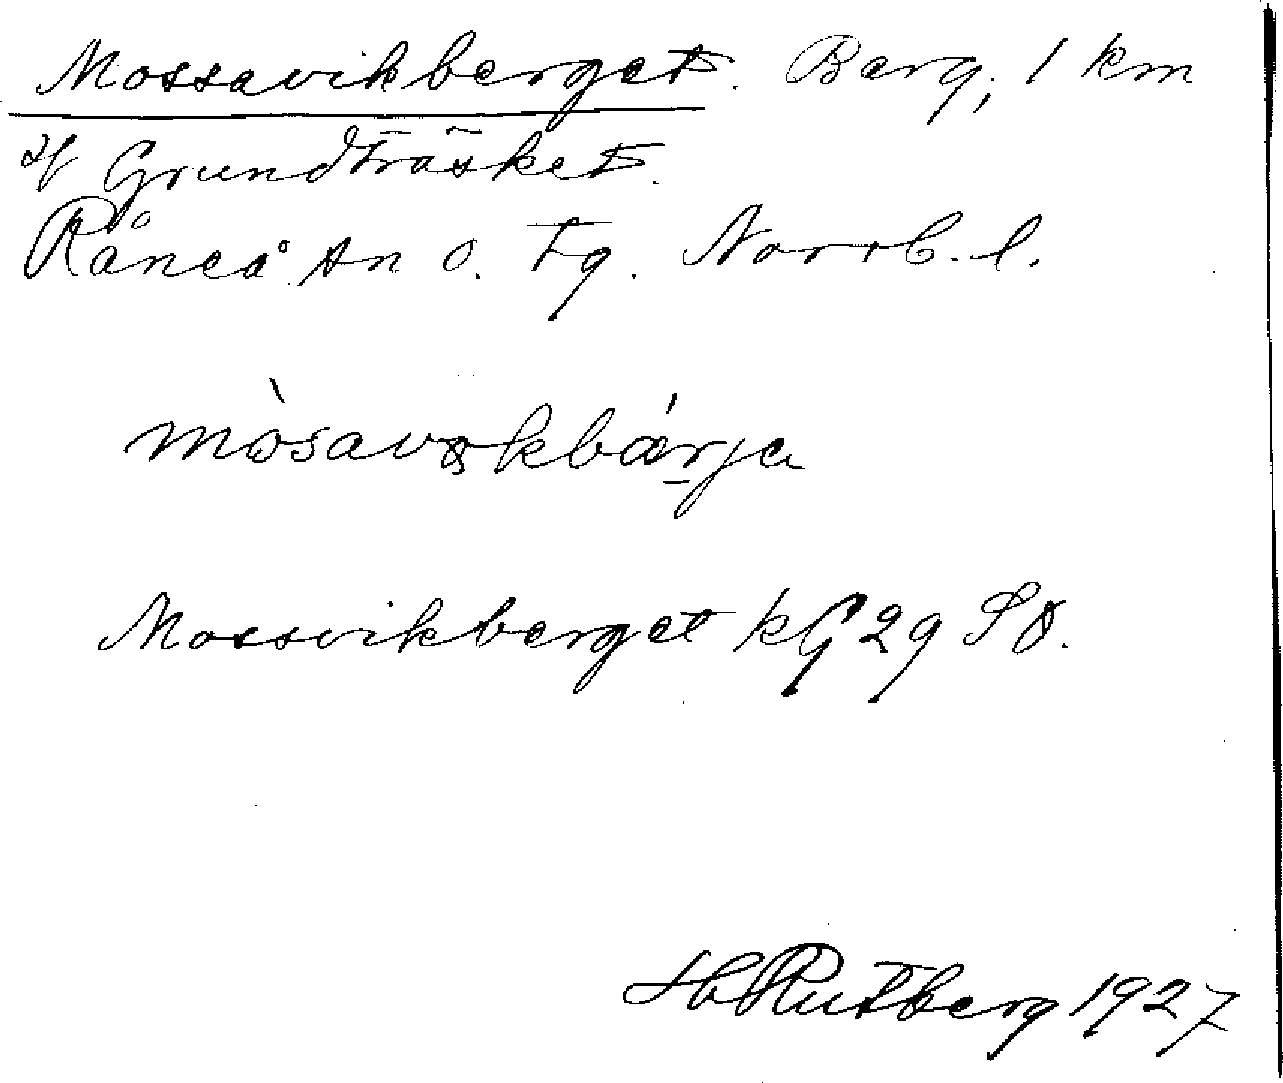 Mossavikberget. Berg, 1 km
af Grundträsket.
Råneå sn o. tg. Norrb. l.
mòsavəkbárja
Mossvikberget kG 29 SO.
H Rutberg 1927